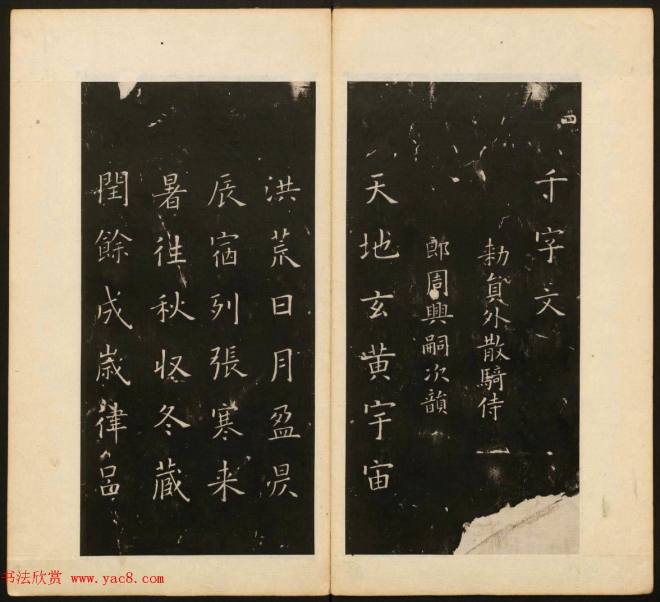 四
千字文
勑員外散騎侍
郎周興嗣次韻
天地玄黄宇宙
洪荒日月盈昃
辰宿列張寒来
暑往秋収冬蔵
閏餘成歳律呂
书法欣赏 www.yac8.com